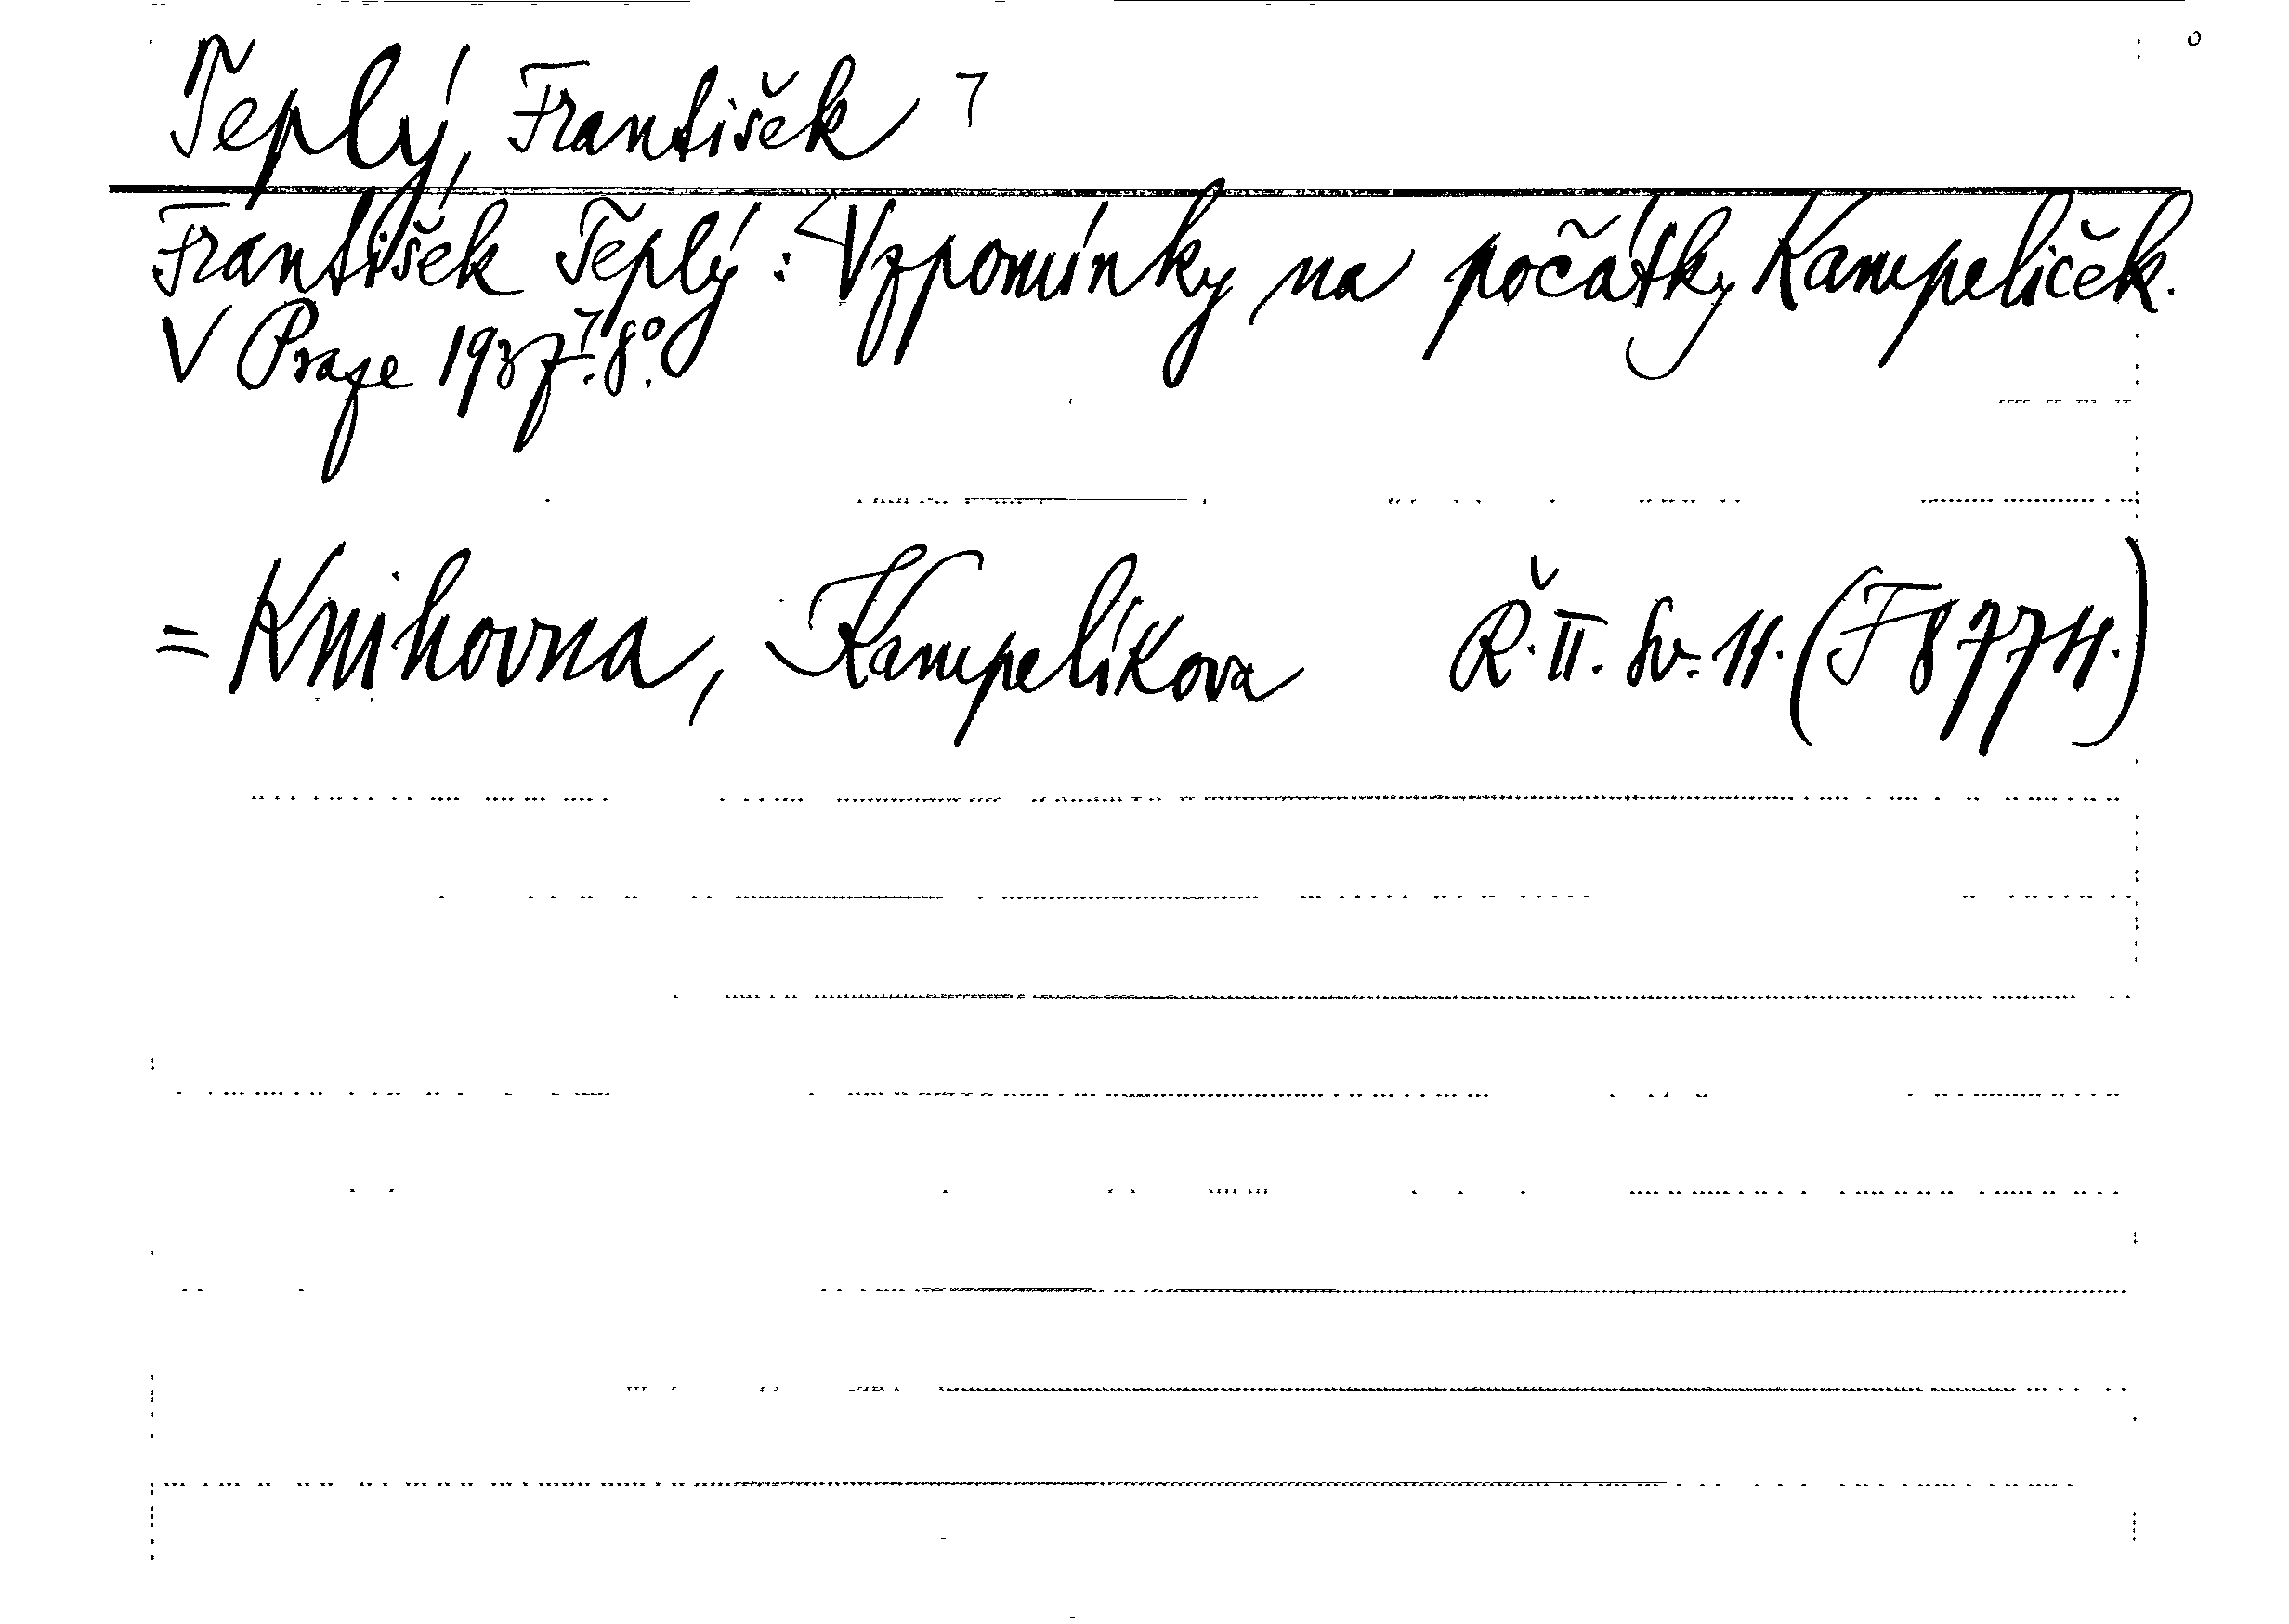 Teplý, František ⁊
František Teplý: Vzpomínky na počátky Kampeliček.
V Praze 1937. 8°.
= Knihovna, Kampelíkova Ř. II. Sv. 11. (F 8774.)